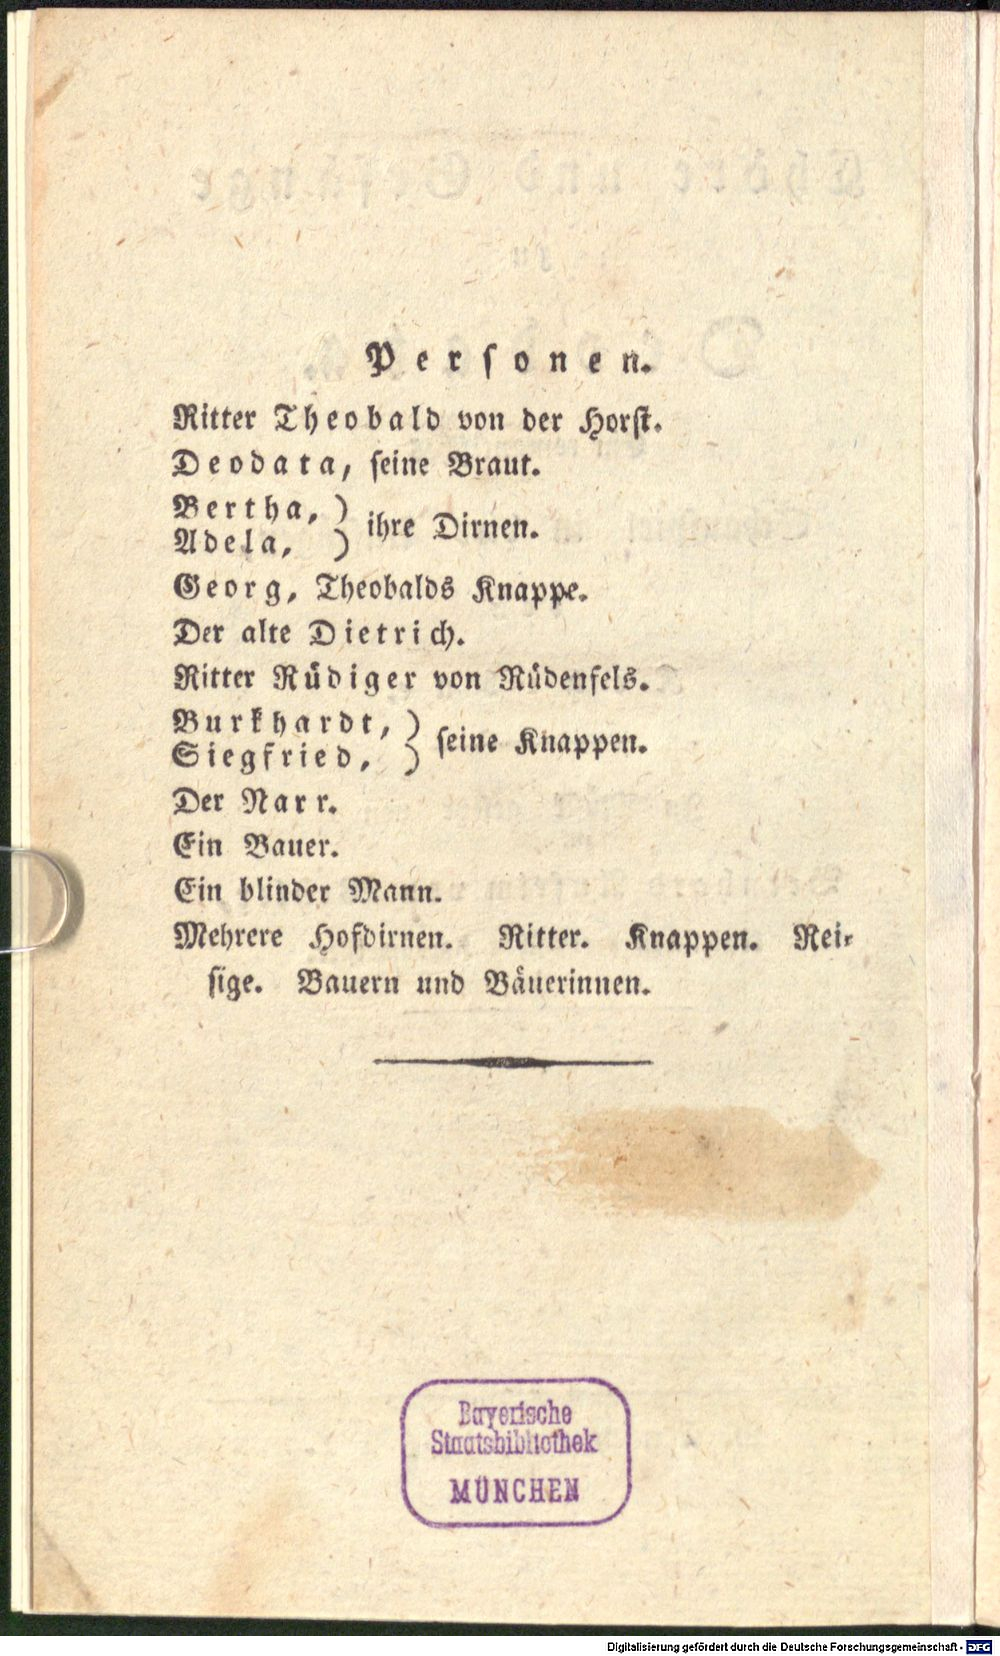 Personen.
Ritter Theobald von der Horſt.
Deodata, ſeine Braut.
Bertha, )
Adela, ) ihre Dirnen.
Georg, Theobalds Knappe.
Der alte Dietrich.
Ritter Rüdiger von Rüdenfels.
Burkhardt, )
Siegfried, ) ſeine Knappen.
Der Narr.
Ein Bauer.
Ein blinder Mann.
Mehrere Hofdirnen. Ritter. Knappen. Rei-
ſige. Bauern und Bäuerinnen.
Bayerische
Staatsbibliothek
MÜNCHEN
Digitalisierung gefördert durch die Deutsche Forschungsgemeinschaft - DFG